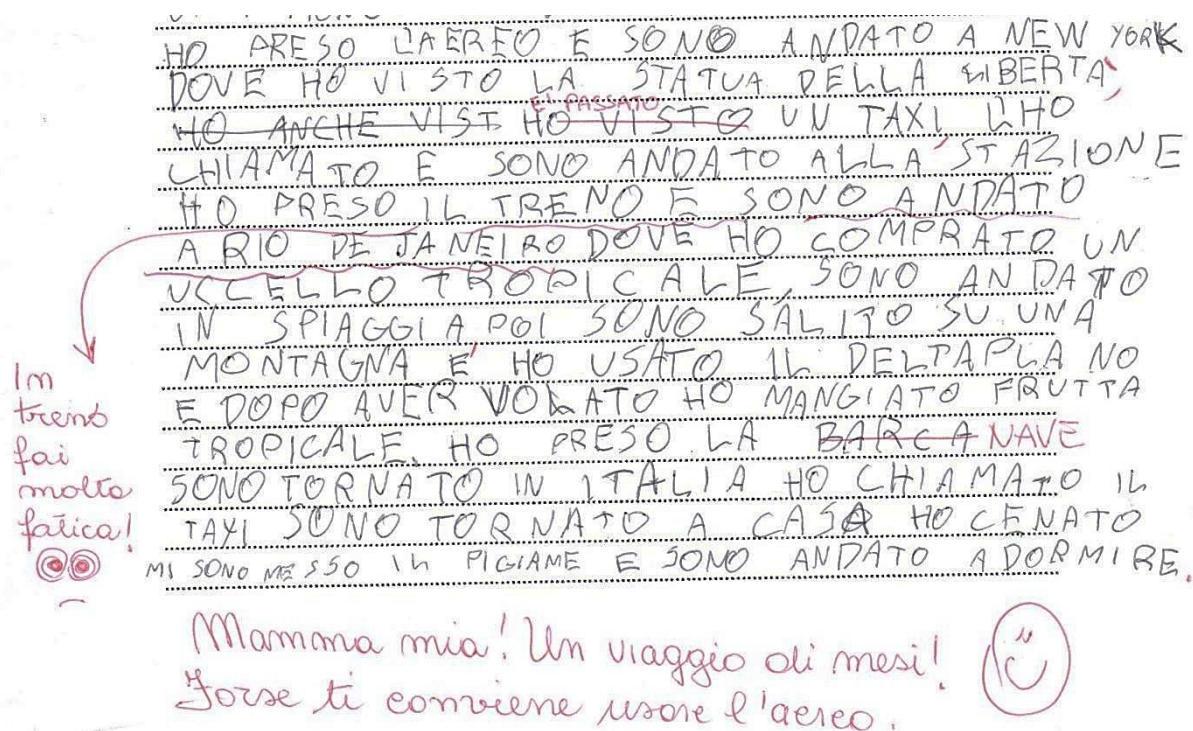 HO PRESO L'AEREO E SONO ANDATO A NEW YORK
DOVE HO VISTO LA STATUA DELLA LIBERTÀ,
E' PASSATO
HO ANCHE VIST HO VISTO UN TAXI, L'HO
CHIAMATO E SONO ANDATO ALLA STAZIONE
HO PRESO IL TRENO E SONO ANDATO
A RIO DE JANEIRO DOVE HO COMPRATO UN
UCCELLO TROPICALE, SONO ANDATO
IN SPIAGGIA POI SONO SALITO SU UNA
MONTAGNA E' HO USATO IL DELTAPLANO
E DOPO AVER VOLATO HO MANGIATO FRUTTA
TROPICALE. HO PRESO LA BARCA NAVE
SONO TORNATO IN ITALIA HO CHIAMATO IL
TAXI SONO TORNATO A CASA HO CENATO
MI SONO MESSO IL PIGIAME E SONO ANDATO A DORMIRE.
In
treno
fai
molta
fatica!
Mamma mia! Un viaggio di mesi!
Forse ti conviene usare l'aereo.